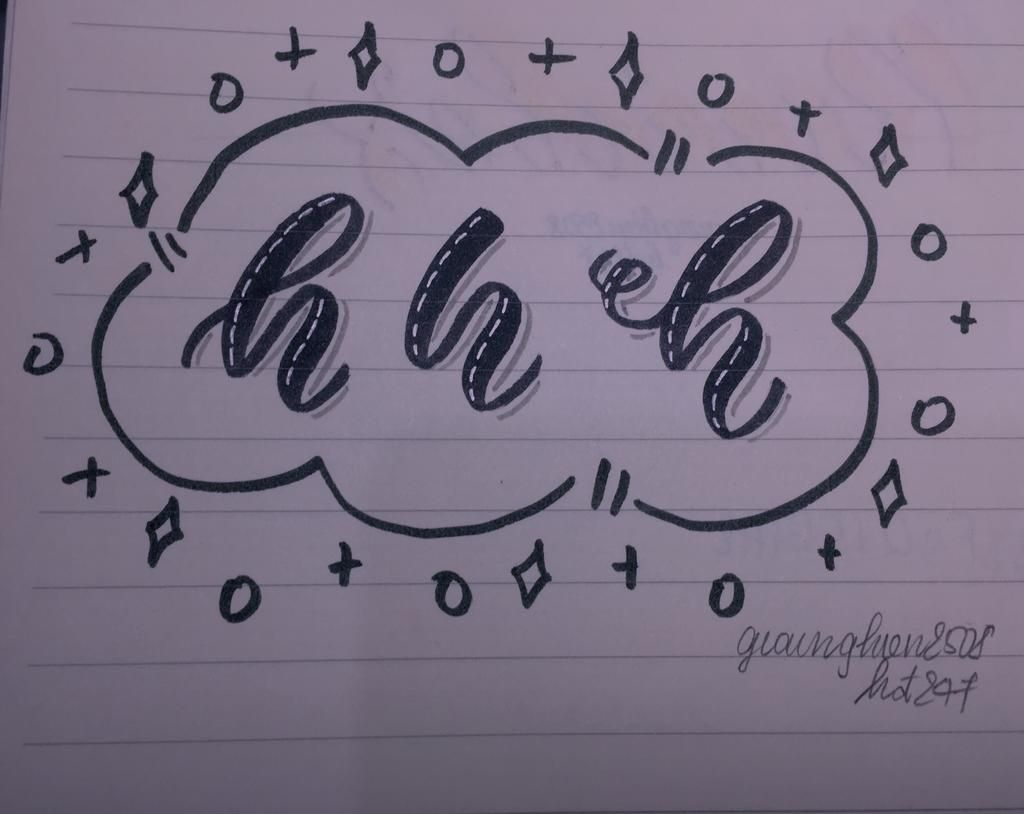 h h h
giainghien2508
hot247